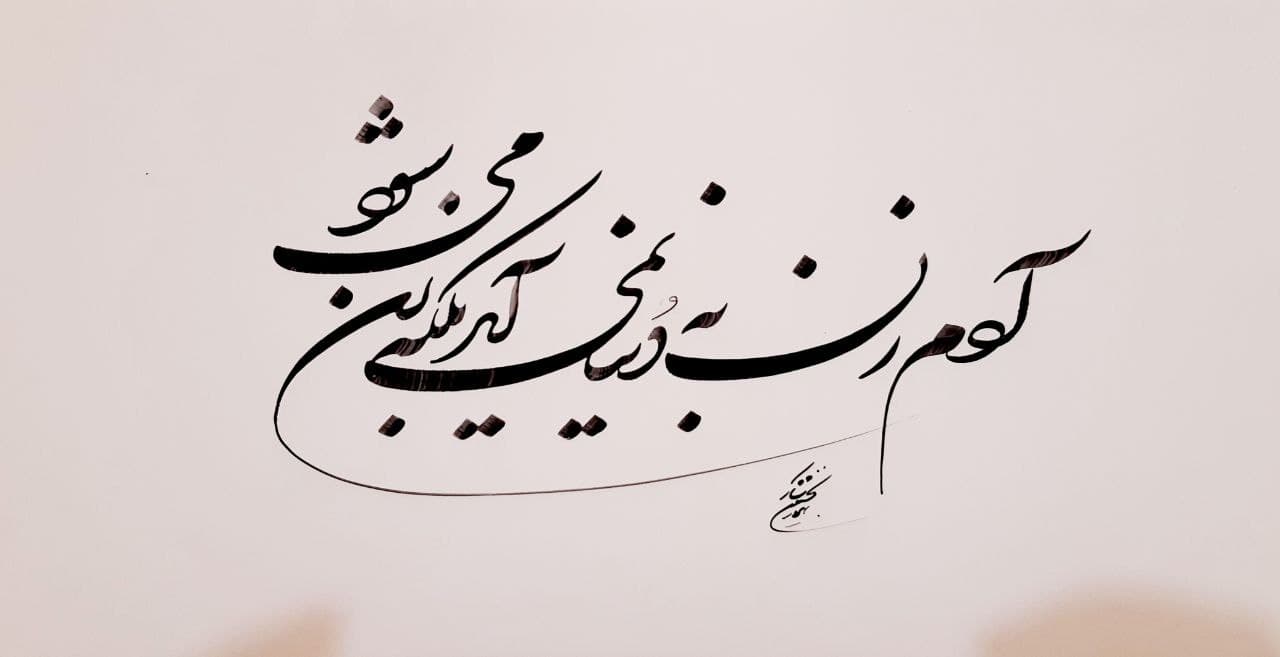 آدم زن به دنیا نمی آید بلکه زن می شود